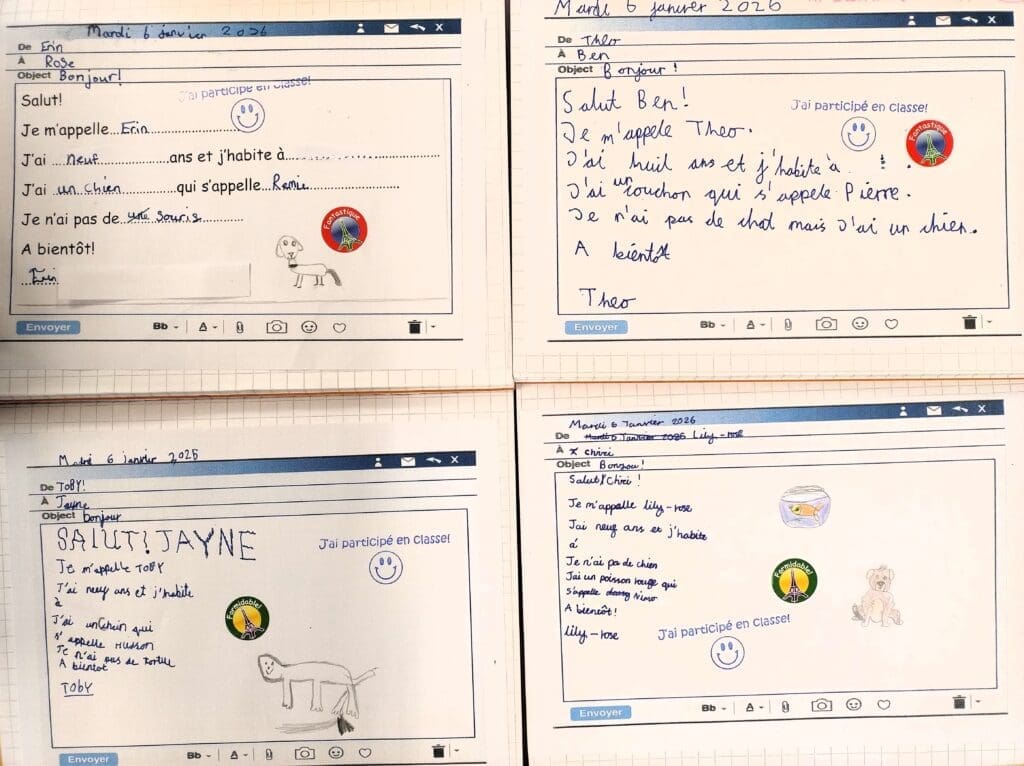 Mardi 6 janvier 2026
De Erin
À Rose
Object Bonjour!
Salut!
J'ai participé en classe!
Je m'appelle...Erin...
J'ai ...neuf...ans et j'habite à...
J'ai un chien...qui s'appelle..Remie...
Je n'ai pas de...une souris...
Fantastique
A bientôt!
Erin
Envoyer
Bb
A
Mardi 6 janvier 2026
De Theo
À Ben
Object Bonjour!
Salut Ben!
J'ai participé en classe!
Fantastique
Je m'appele Theo.
J'ai huil ans et j'habite à
J'ai un couchon qui s'appele Pierre.
Je n'ai pas de chat mais J'ai un chien.
A bientôt
Theo
Envoyer
Bb
A
6 janvier 2025
De TOBY!
À Jayne
Object bonjour
SALUT! JAYNE
J'ai participé en classe!
Je m'appelle TOBY
J'ai neuf ans et j'habite
à
Formidable!
J'ai un chein qui
s'appelle Husson
Je n'ai pas de tortue
A bientot
TOBY
Envoyer
Bb
A
Mardi 6 Janvier 2026
De Mardi 6 Janvier 2026 Lily-rose
À Chiri
Object Bonjou!
Salut! Chiri!
Je m'appelle lily-rose
J'ai neuf ans et j'habite
á
Je n'ai pas de chien
J'ai un poisson rouge qui
s'appelle Nimo
Formidable!
A bientôt!
lily-rose
J'ai participé en classe!
Envoyer
Bb
A